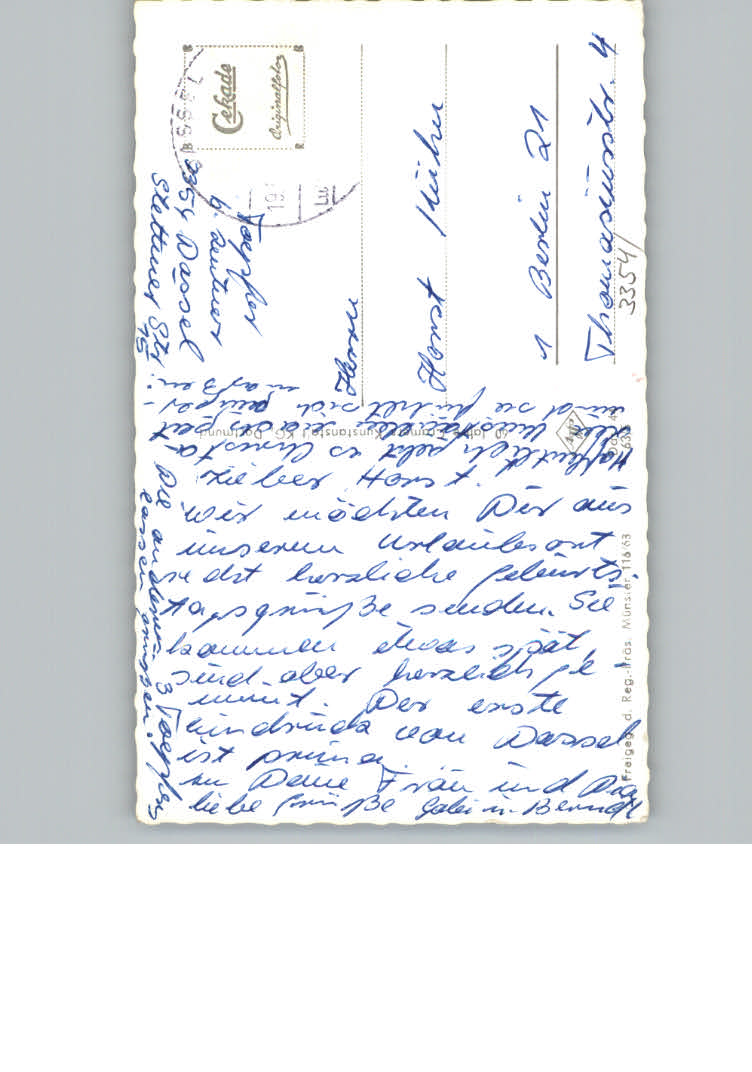 Cekade
Originalfoto
Toepfer
b. Lentner
3354 Dassel
Stettiner Str.
15
Herrn
Horst Kühn
1 Berlin 21
Thomasiusstr. 4
3354/
Lieber Horst.
Wir möchten Dir aus
unserem Urlaubsort
recht herzliche Geburts-
tagsgrüße senden. Sie
kommen etwas spät,
sind aber herzlich ge-
meint. Der erste
Eindruck von Dassel
ist prima.
An Deine Frau und Dich
liebe Grüße Gabi u. Bernd
Die anderen 3 Toepfer
lassen grüßen.
Hoffentlich geht es Christa
und sie fühlt sich
Kunstanstalt KG, Dortmund
Freigeg. d. Reg.-Präs. Münster 116/63